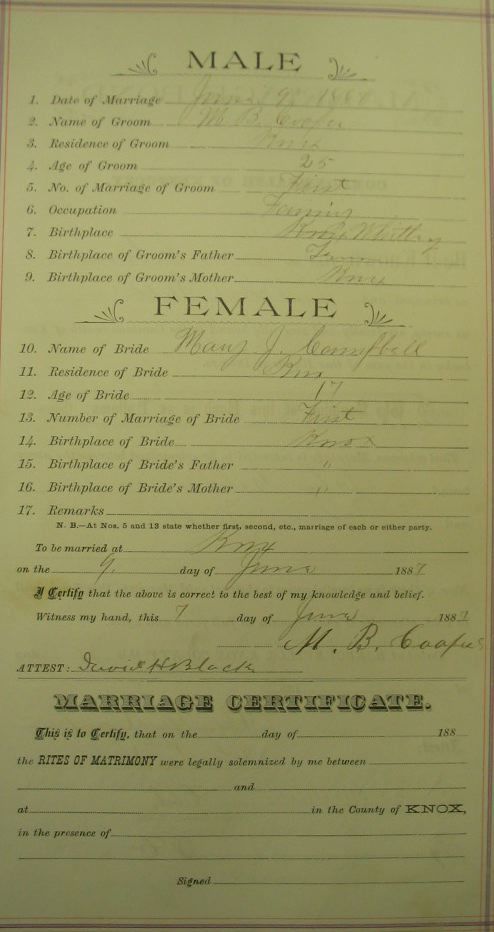 MALE
1. Date of Marriage June 9th 188
2. Name of Groom M. B. Cooper
3. Residence of Groom Knox
4. Age of Groom 25
5. No. of Marriage of Groom First
6. Occupation Farming
7. Birthplace Whitley
8. Birthplace of Groom's Father
9. Birthplace of Groom's Mother Knox
FEMALE
10. Name of Bride Mary J. Campbell
11. Residence of Bride Knox
12. Age of Bride 17
13. Number of Marriage of Bride First
14. Birthplace of Bride Knox
15. Birthplace of Bride's Father "
16. Birthplace of Bride's Mother "
17. Remarks
N. B.—At Nos. 5 and 13 state whether first, second, etc., marriage of each or either party.
To be married at Knox
on the 9. day of June 1887
I Certify that the above is correct to the best of my knowledge and belief.
Witness my hand, this 7 day of June 1887
M. B. Cooper
ATTEST: David H Black
MARRIAGE CERTIFICATE.
This is to Certify, that on the day of 188
the RITES OF MATRIMONY were legally solemnized by me between
and
at in the County of KNOX,
in the presence of
Signed